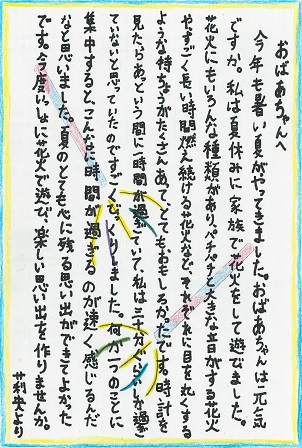 おばあちゃんへ
今年も暑い夏がやってきました。おばあちゃんは元気
ですか。私は夏休みに家族で花火をして遊びました。
花火にもいろんな種類があり、パチパチと大きな音がする花火
やすごく長い時間燃え続ける花火など、それぞれに目を丸くする
ような特ちょうがたくさんあって、とてもおもしろかったです。時計を
見たらあっという間に一時間が過ぎていて、私は三十分ぐらいしか過ぎ
ていないと思っていたのですごくびっくりしました。何か一つのことに
集中すると、こんなに時間が過ぎるのが速く感じるんだ
なと思いました。夏のとても心に残る思い出ができてよかった
です。今度いっしょに花火で遊び、楽しい思い出を作りませんか。
より